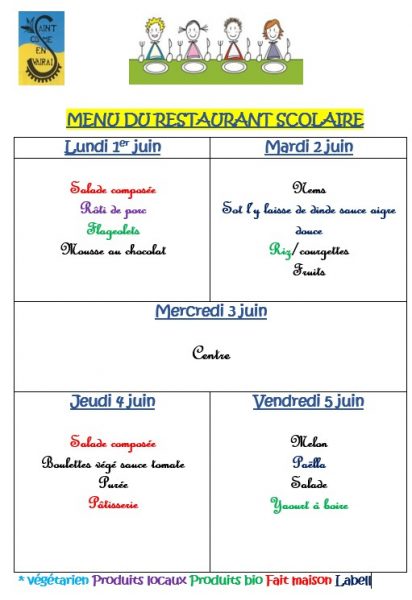 SAINT
COME
EN
VAIRAIS
MENU DU RESTAURANT SCOLAIRE
Lundi 1er juin
Salade composée
Râti de porc
Flageolets
Mousse au chocolat
Mardi 2 juin
Nems
Sot l'y laisse de dinde sauce aigre
douce
Riz/courgettes
Fruits
Mercredi 3 juin
Centre
Jeudi 4 juin
Salade composée
Boulettes végé sauce tomate
Purée
Pâtisserie
Vendredi 5 juin
Melon
Paëlla
Salade
Yaourt à boire
* végétarien Produits locaux Produits bio Fait maison Labell